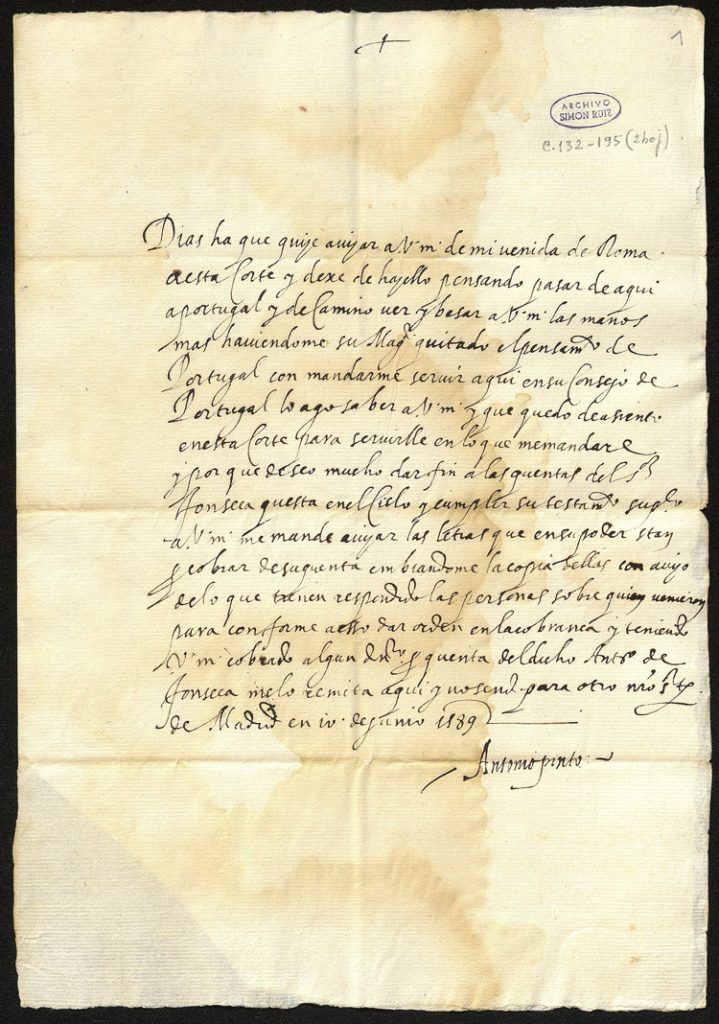 1
ARCHIVO
SIMON RUIZ
C. 132-195 (2 hoj)
Dias ha que quije avijar a V. m. de mi venida de Roma
a esta Corte y dexe de hajello pensando pasar de aqui
a portugal y de Camino ver y besar a V. m. las manos
mas haviendome su Magd. quitado el pensamto de
Portugal con mandarme servir aqui en su Consejo de
Portugal lo ago saber a V. m. y que quedo de asiento
en esta Corte para servirlle en lo que me mandare
y por que deseo mucho dar fin a las quentas del sr
Fonseca questa en el Cielo y cumplir su testamto supco
a V. m. me mande avijar las letras que en su poder stan
p cobrar de su quenta embiandome la copia dellas con avijo
de lo que tienen respondido las personas sobre quien venieron
para conforme a esso dar orden en la cobranca y teniendo
V. m. cobrado algun dnro. p quenta del dicho Anto de
Fonseca me lo remita aqui y no send. para otro nro sr
de Madrid en 10 de junio 1589
Antonio pinto